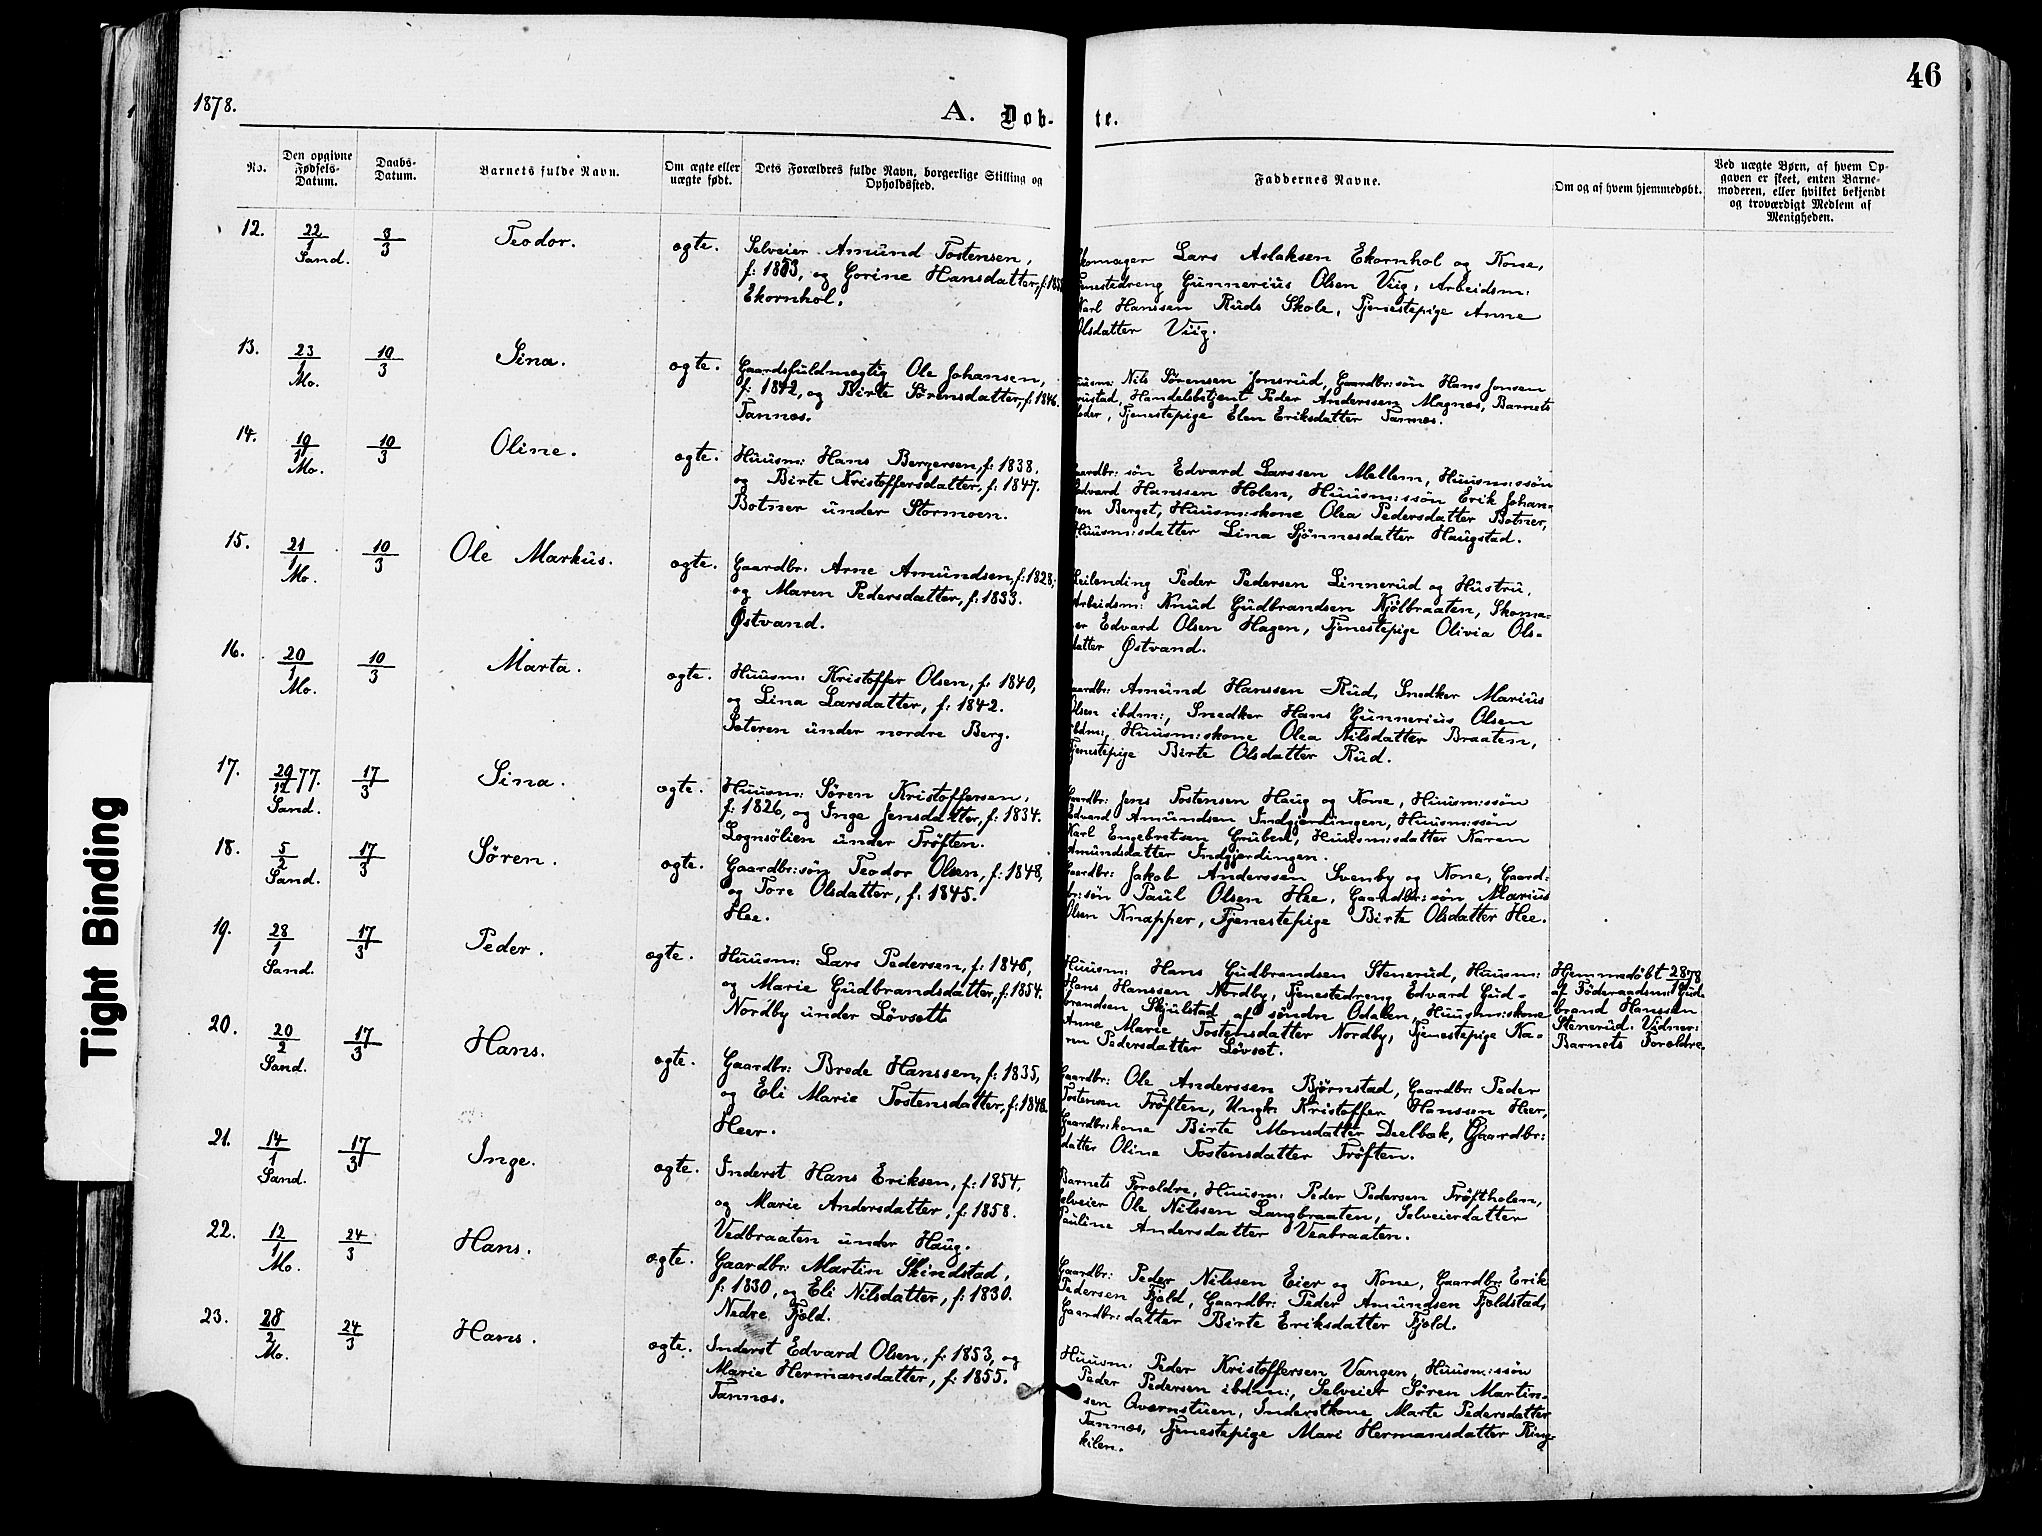 46
1878.
A. Døb-
te.
No.
Den opgivne
Fødsels-
Datum.
Daabs-
Datum.
Barnets fulde Navn.
Om ægte eller
uægte født.
Dets Forældres fulde Navn, borgerlige Stilling og
Opholdssted.
Faddernes Navne.
Om og af hvem hjemmedøbt.
Ved uægte Børn, af hvem Op-
gaven er skeet, enten Barne-
moderen, eller hvilket bekjendt
og troværdigt Medlem af
Menigheden.
12.
22/1
Sand.
3/3
Teodor.
ægte.
Selveier Amund Tostensen,
f: 1853, og Gorine Hansdatter, f: 185
Ekornhol.
Skomager Lars Aslaksen Ekornhol og Kone,
Tjenestedreng Gunnerius Olsen Viig, Arbeidsm:
Karl Hanssen Ruds Skole, Tjenestepige Anne
Olsdatter Viig.
13.
23/1
Mo.
10/3
Sina.
ægte.
Gaardsfuldmægtig Ole Johansen,
f: 1842, og Birte Sørensdatter, f: 1846.
Tannæs.
Huusm: Nils Sørensen Jonsrud, Gaardbr:søn Hans Jonsen
rustad, Handelsbetjent Peder Anderssen Magnæs, Barnets
Fader, Tjenestepige Elen Eriksdatter Tannæs.
14.
19/1
Mo.
10/3
Oline.
ægte.
Huusm: Hans Bergersen, f: 1838,
og Birte Kristoffersdatter, f: 1847.
Botner under Stormoen.
Gaardbr: søn Edvard Larssen Mellem, Huusm:søn
Edvard Hanssen Holen, Huusm:søn Erik Johan-
sen Berget, Huusm:skone Olea Pedersdatter Botner,
Huusm:sdatter Lina Sjønnesdatter Haugstad.
15.
21/1
Mo.
10/3
Ole Markus.
ægte.
Gaardbr: Arne Amundsen, f: 1828,
og Maren Pedersdatter, f: 1833.
Østvand.
Leilending Peder Pedersen Linnerud og Hustru,
Arbeidsm: Knud Gudbrandsen Kjølbraaten, Skoma-
er Edvard Olsen Hagen, Tjenestepige Olivia Ols-
datter Østvand.
16.
20/1
Mo.
10/3
Marta.
ægte.
Huusm: Kristoffer Olsen, f: 1840,
og Lina Larsdatter, f: 1842.
Seteren under nordre Berg.
Gaardbr: Amund Hanssen Rud, Snedker Marius
Olsen ibdm:, Snedker Hans Gunnerius Olsen
ibdm:, Huusm:skone Olea Nilsdatter Braaten,
Tjenestepige Birte Olsdatter Rud.
17.
29/12 77.
Sand.
17/3
Sina.
ægte.
Huusm: Søren Kristoffersen,
f: 1826, og Inge Jensdatter, f: 1834.
Lognsølien under Trøften.
Gaardbr: Jens Tostensen Haug og Kone, Huusm:søn
Edvard Amundsen Indgjerdingen, Huusm:søn
Karl Engebretsen Gruben, Huusm:sdatter Karen
Amundsdatter Indgjerdingen.
18.
5/2
Sand.
17/3
Søren.
ægte.
Gaardbr:søn Teodor Olsen, f: 1848,
og Tore Olsdatter, f: 1845.
Hee.
Gaardbr: Jakob Anderssen Svenby og Kone, Gaard:
br:søn Paul Olsen Hee, Gaardbr:søn Marius
Olsen Knapper, Tjenestepige Birte Olsdatter Hee.
19.
28/1
Sand.
17/3
Peder.
ægte.
Huusm: Lars Pedersen, f: 1846,
og Marie Gudbrandsdatter, f: 1854.
Nordby under Løvsett.
Huusm: Hans Gudbrandsen Stenerud, Huusm:
Hans Hanssen Nordby, Tjenestedreng Edvard Gud-
brandsen Skjulstad af søndre Odalen, Huusm:skone
Anne Marie Tostensdatter Nordby, Tjenestepige Ka-
ren Pedersdatter Løvset.
Hjemmedøbt 28/1 78
af Føderaadsm: Gud-
brand Hanssen
Stenerud. Vidner:
Barnets Foreldre.
20.
20/2
Sand.
17/3
Hans.
ægte.
Gaardbr: Brede Hanssen, f: 1835,
og Eli Marie Tostensdatter, f: 1848.
Heer.
Gaardbr: Ole Anderssen Bjørnstad, Gaardbr: Peder
Tostensen Trøften, Ungk: Kristoffer Hanssen Heer,
Gaardbr:kone Birte Monsdatter Deelbæk, Gaardbr:
datter Oline Tostensdatter Trøften.
21.
14/1
Sand.
17/3
Inge.
ægte.
Inderst Hans Eriksen, f: 1854,
og Marie Andersdatter, f: 1858.
Vedbraaten under Haug.
Barnets Foreldre, Huusm: Peder Pedersen Trøftholen,
Selveier Ole Nilssen Langbraaten, Selveierdatter
Pauline Andersdatter Veabraaten.
22.
12/1
Mo.
24/3
Hans.
ægte.
Gaardbr: Martin Skindstad,
f: 1830, og Eli Nilsdatter, f: 1830.
Nedre Fjeld.
Gaardbr: Peder Nilssen Eier og Kone, Gaardbr: Erik
Pedersen Fjeld, Gaardbr: Peder Amundsen Fjeldstad,
Gaardbr:datter Birte Eriksdatter Fjeld.
23.
28/2
Mo.
24/3
Hans.
ægte.
Inderst Edvard Olsen, f: 1853, og
Marie Hermansdatter, f: 1855.
Tannæs.
Huusm: Peder Kristoffersen Vangen, Huusm:søn
Peder Pedersen ibdm:, Selveier Søren Martin-
sen Qvernstuen, Inderstkone Marte Pedersdatter
Tannæs, Tjenestepige Mari Hermansdatter Ring-
kilen.
Tight Binding